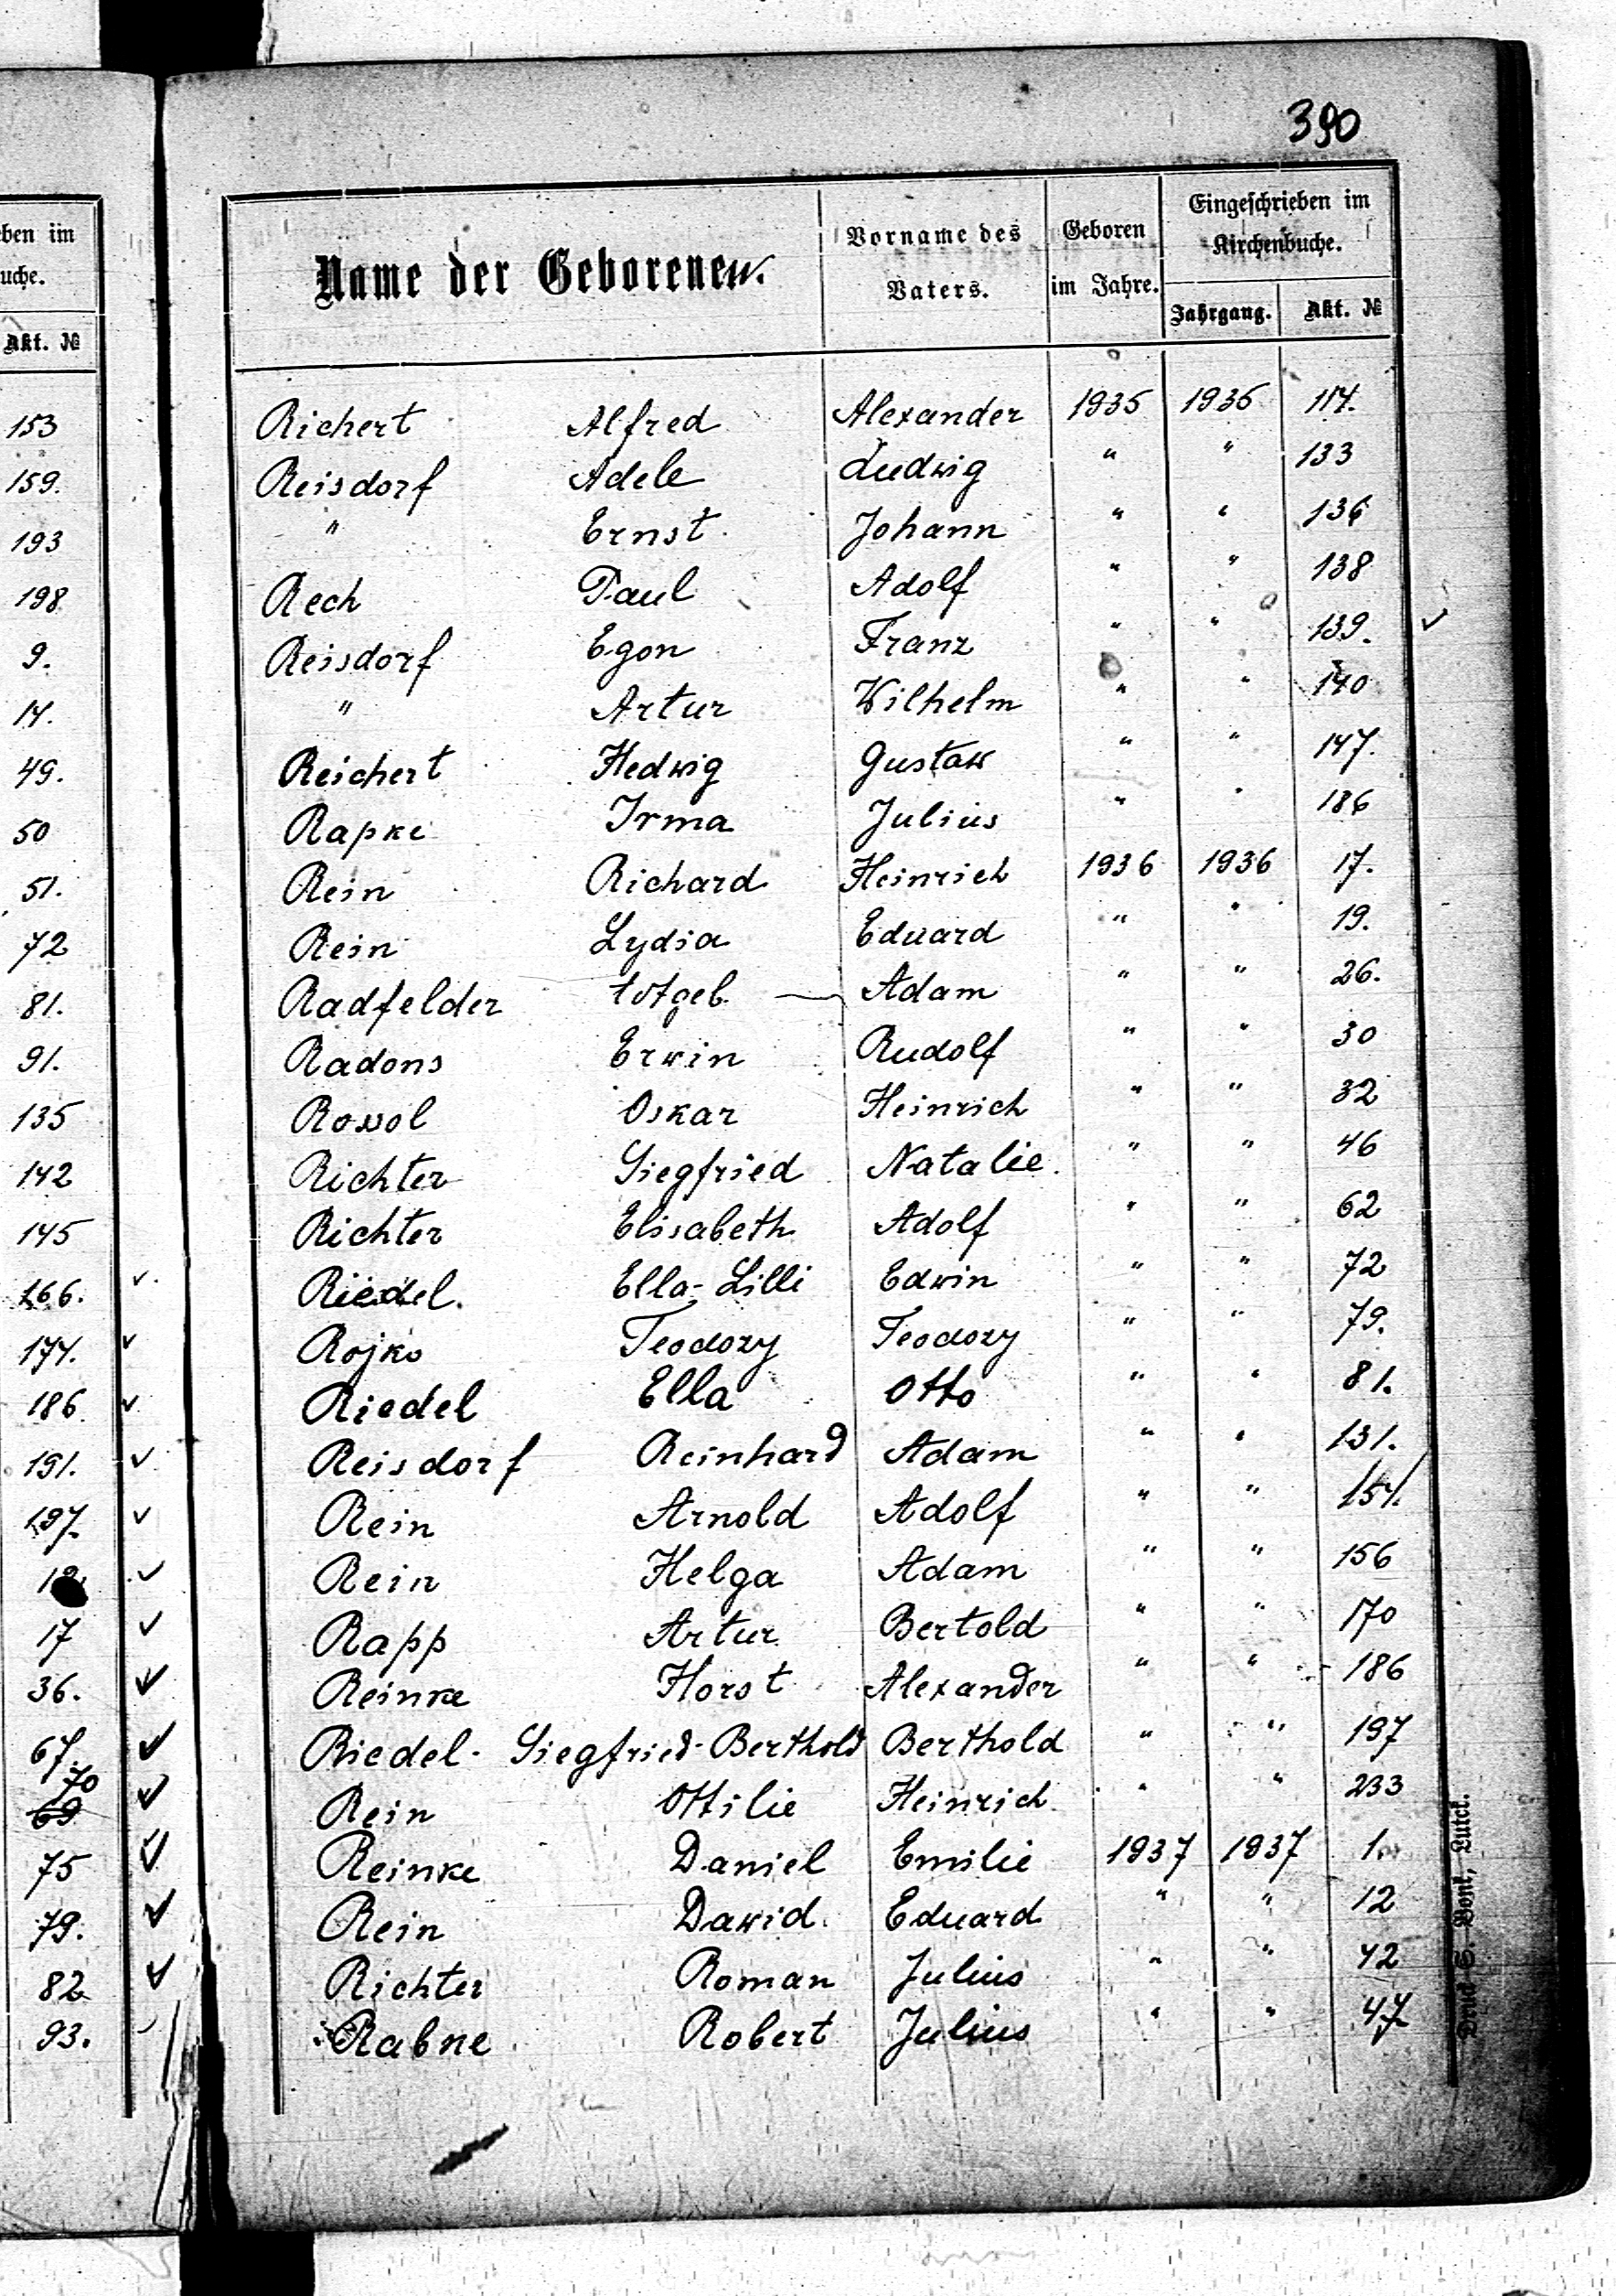 390
eben im
uche.
Akt. №
153
159.
193
198
9.
14.
49.
50
51.
72
81.
91.
135
142
145
166.
174.
186
191.
197.
17
36.
67.
70
69
75
79.
82
93.
Name der Geborenen.
Vorname des Vaters.
Geboren im Jahre.
Eingeschrieben im Kirchenbuche.
Jahrgang. Akt. №
Richert Alfred Alexander 1935 1935 114.
Reisdorf Adele Ludwig " " 133
" Ernst Johann " " 136
Rech Paul Adolf " " 138
Reisdorf Egon Franz " " 139. ✓
" Artur Wilhelm " " 140
Reichert Hedwig Gustaw " " 147.
Rapke Irma Julius " " 186
Rein Richard Heinrich 1936 1936 17.
Rein Lydia Eduard " " 19.
Radfelder totgeb. — Adam " " 26.
Radons Erwin Rudolf " " 30
Rossol Oskar Heinrich " " 32
Richter Siegfried Natalie " " 46
Richter Elisabeth Adolf " " 62
Riedel. Ella-Lilli Edwin " " 72
Rojko Teodozy Teodozy " " 79.
Riedel Ella Otto " " 81.
Reisdorf Reinhard Adam " " 131.
Rein Arnold Adolf " "
Rein Helga Adam " " 156
Rapp Artur Bertold " " 170
Reinke Horst Alexander " " 186
Riedel Siegfried-Berthold Berthold " " 197
Rein Ottilie Heinrich " " 233
Reinke Daniel Emilie 1937 1937 1.
Rein Dawid Eduard " " 12
Richter Roman Julius " " 42
Rabne Robert Julius " " 47
Druck S. Bont, Luck.